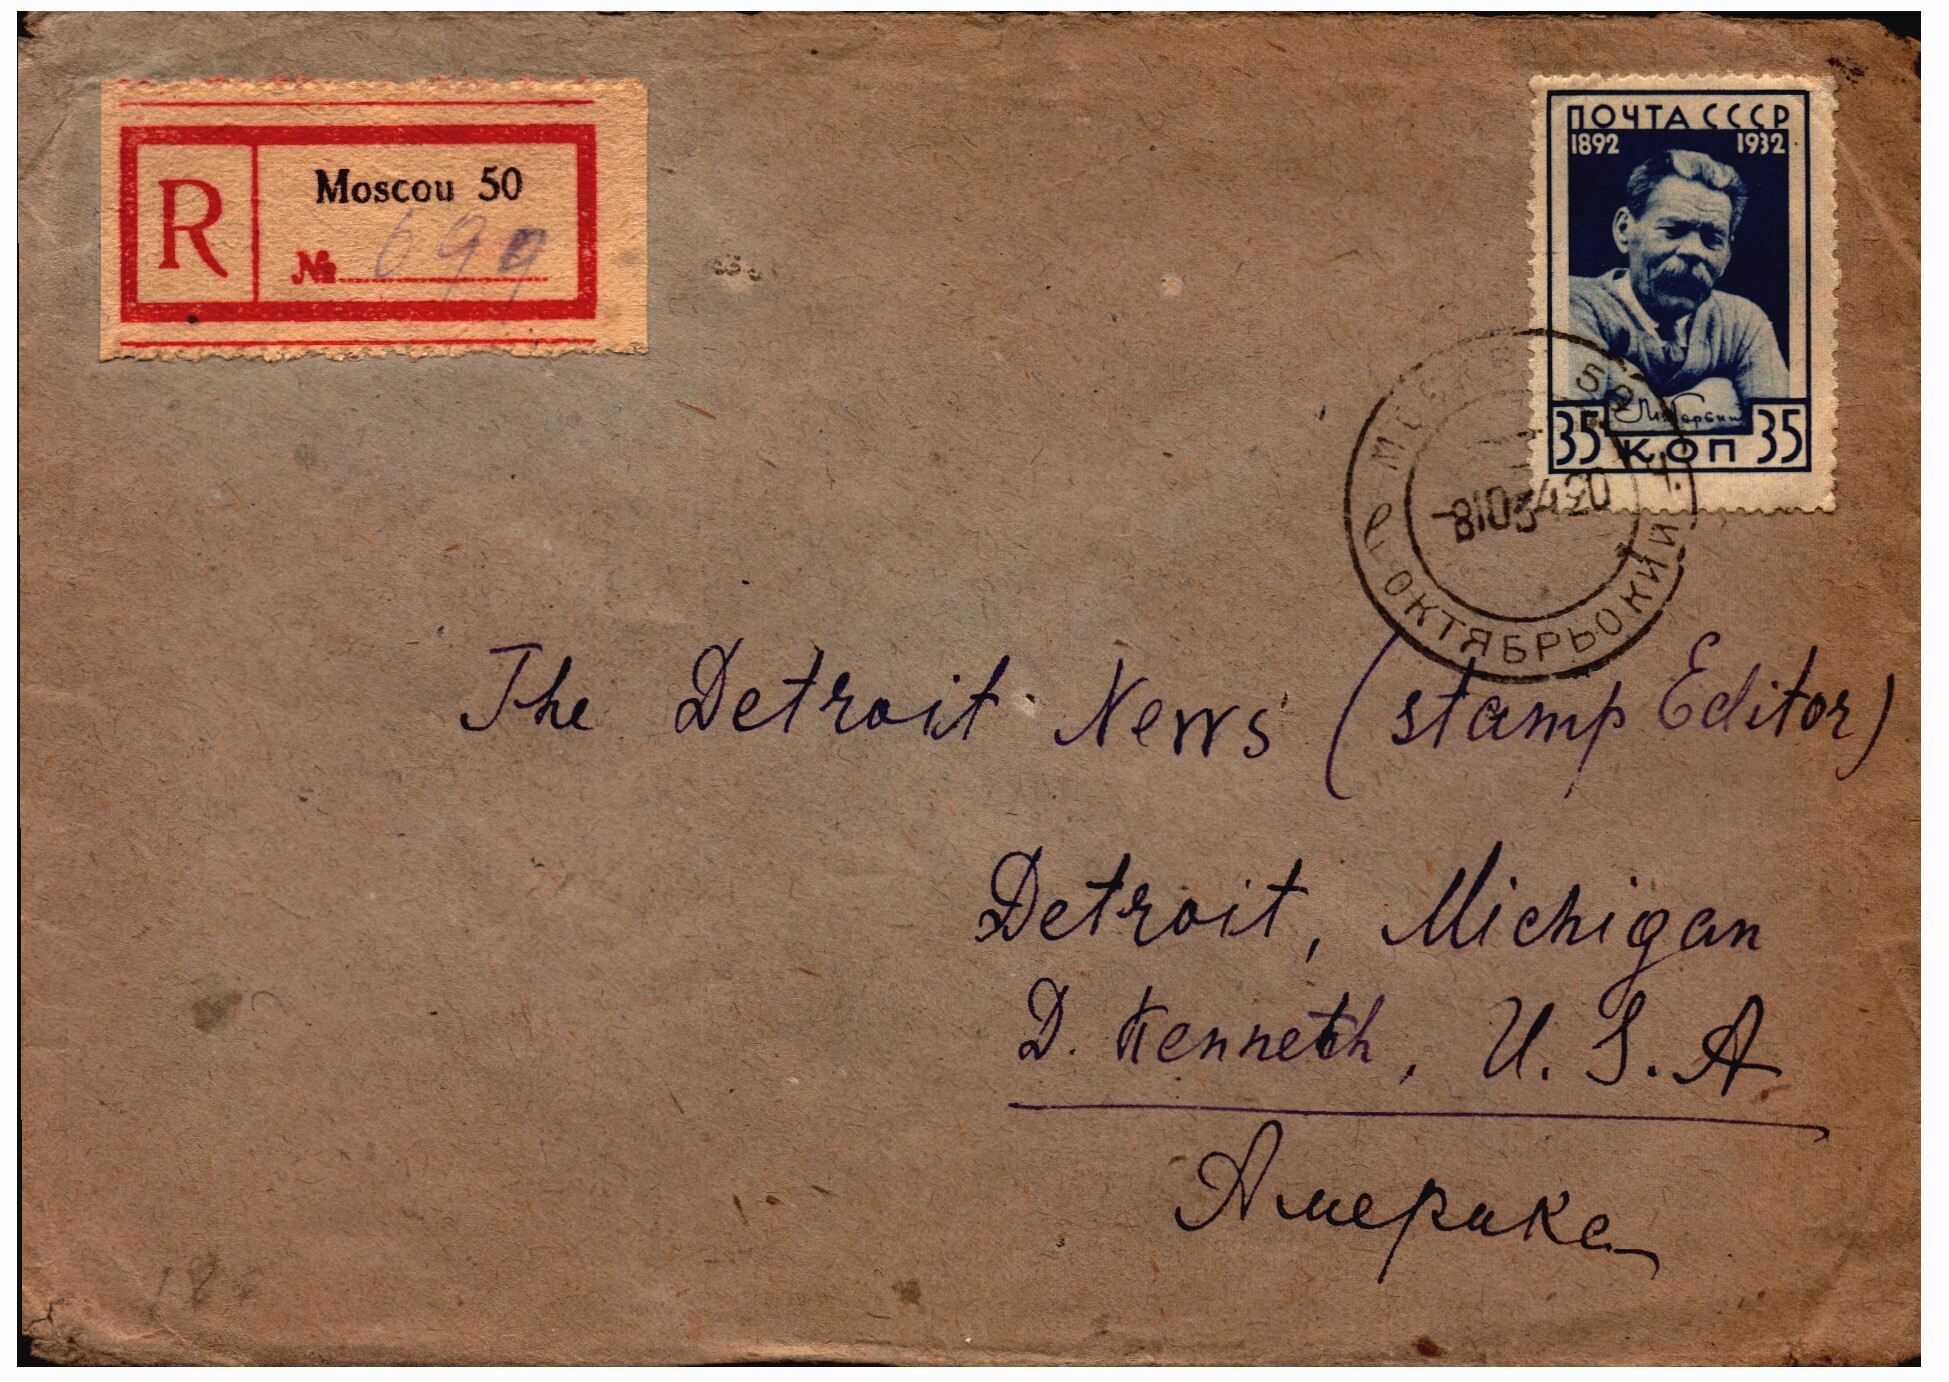 R
Moscou 50
№ 699
ПОЧТА СССР
1892 1932
М. Горький
35 КОП 35
МОСКВА 50
-8103420
ОКТЯБРЬСКИЙ
The Detroit News (stamp Editor)
Detroit, Michigan
D. Kenneth, U. S. A.
Америка
18